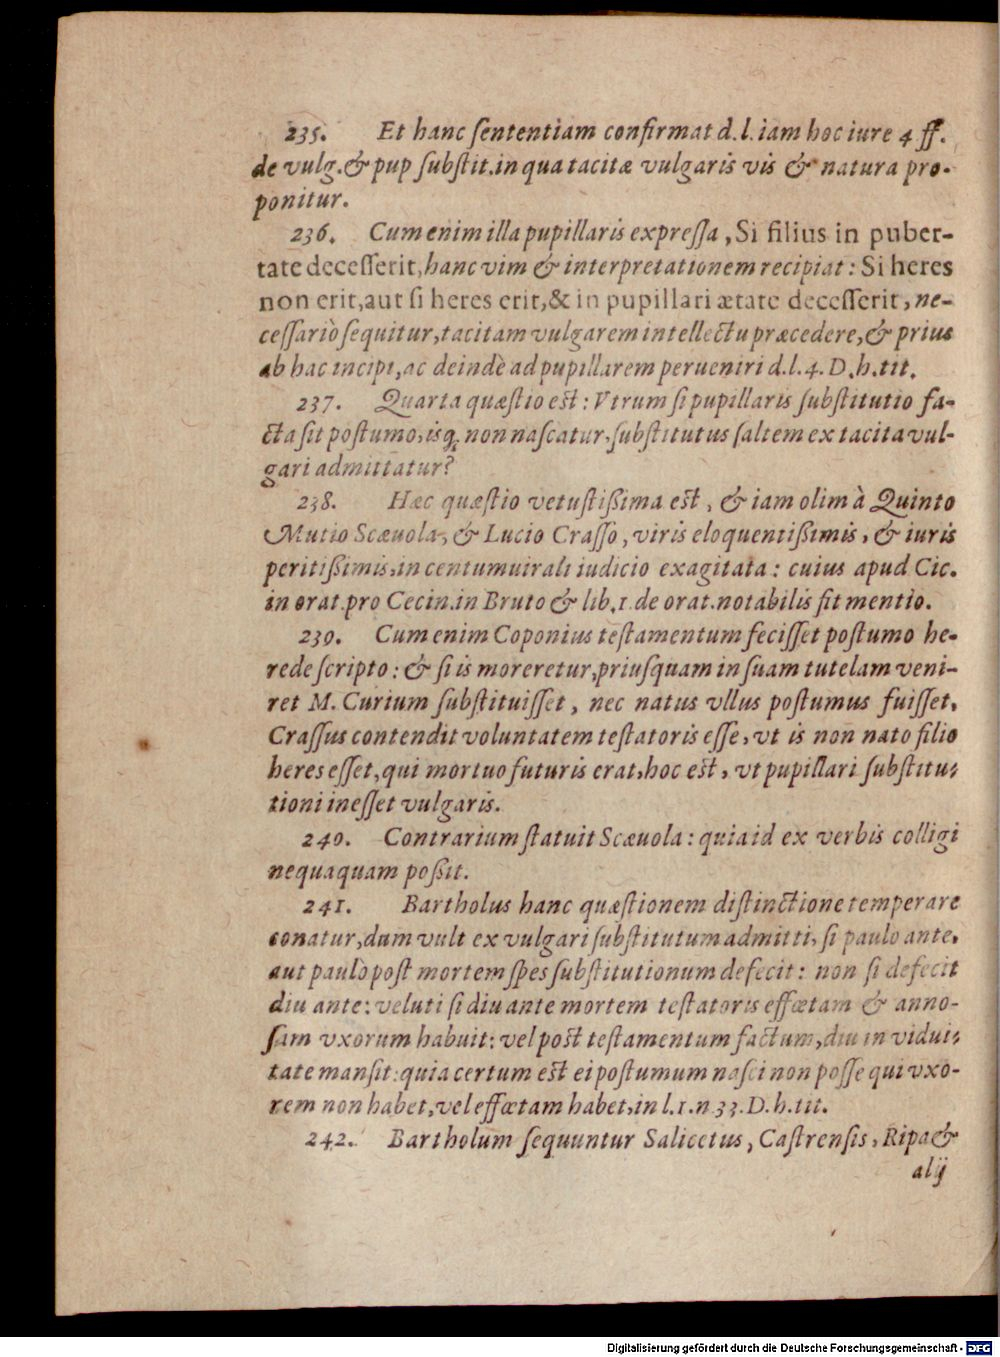 235. Et hanc ſententiam confirmat d.l.iam hoc iure 4 ff.
de vulg.& pup ſubſtit.in qua tacitæ vulgaris vis & natura pro-
ponitur.
236. Cum enim illa pupillaris expreſſa, Si filius in puber-
tate deceſſerit, hanc vim & interpretationem recipiat: Si heres
non erit, aut ſi heres erit, & in pupillari ætate deceſſerit, ne-
ceſſariò ſequitur, tacitam vulgarem intellectu præcedere, & prius
ab hac incipi, ac deindè ad pupillarem perueniri d.l.4. D.h.tit.
237. Quarta quæſtio est: Vtrum ſi pupillaris ſubſtitutio fa-
cta ſit poſtumo, isq; non naſcatur, ſubſtitutus ſaltem ex tacita vul-
gari admittatur?
238. Hæc quæſtio vetuſtißima est, & iam olim à Quinto
Mutio Scæuola, & Lucio Craſſo, viris eloquentißimis, & iuris
peritißimis, in centumuirali iudicio exagitata: cuius apud Cic.
in orat.pro Cecin.in Bruto & lib.1.de orat.notabilis fit mentio.
239. Cum enim Coponius teſtamentum feciſſet poſtumo he-
rede ſcripto: & ſi is moreretur, priuſquam in ſuam tutelam veni-
ret M. Curium ſubſtituiſſet, nec natus vllus poſtumus fuiſſet,
Craſſus contendit voluntatem teſtatoris eſſe, vt is non nato filio
heres eſſet, qui mortuo futuris erat, hoc est, vt pupillari ſubſtitu-
tioni ineſſet vulgaris.
240. Contrarium ſtatuit Scæuola: quia id ex verbis colligi
nequaquam poßit.
241. Bartholus hanc quæſtionem diſtinctione temperare
conatur, dum vult ex vulgari ſubſtitutum admitti, ſi paulo ante,
aut paulò poſt mortem ſpes ſubſtitutionum defecit: non ſi defecit
diu ante: veluti ſi diu ante mortem teſtatoris effœtam & anno-
ſam vxorum habuit: vel post teſtamentum factum, diu in vidui-
tate manſit: quia certum est ei poſtumum naſci non poſſe qui vxo-
rem non habet, vel effœtam habet, in l.1.n 33.D.h.tit.
242. Bartholum ſequuntur Salicetus, Caſtrenſis, Ripa &
alij
Digitalisierung gefördert durch die Deutsche Forschungsgemeinschaft - DFG